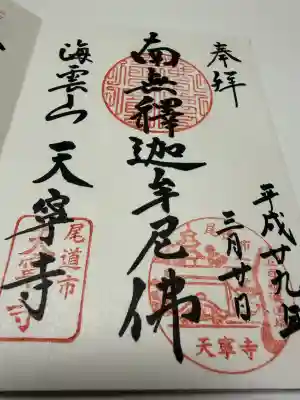 奉拝
平成廿九年
三月廿日
南無釋迦牟尼佛
海雲山 天寧寺
尾道市
天寧寺
尾道
天寧寺